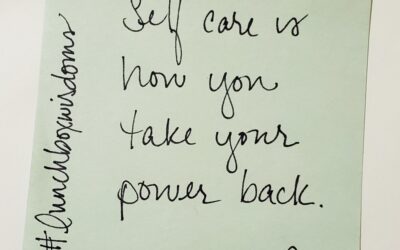 Self care is
how you
take your
power back.
#lunchboxwisdoms